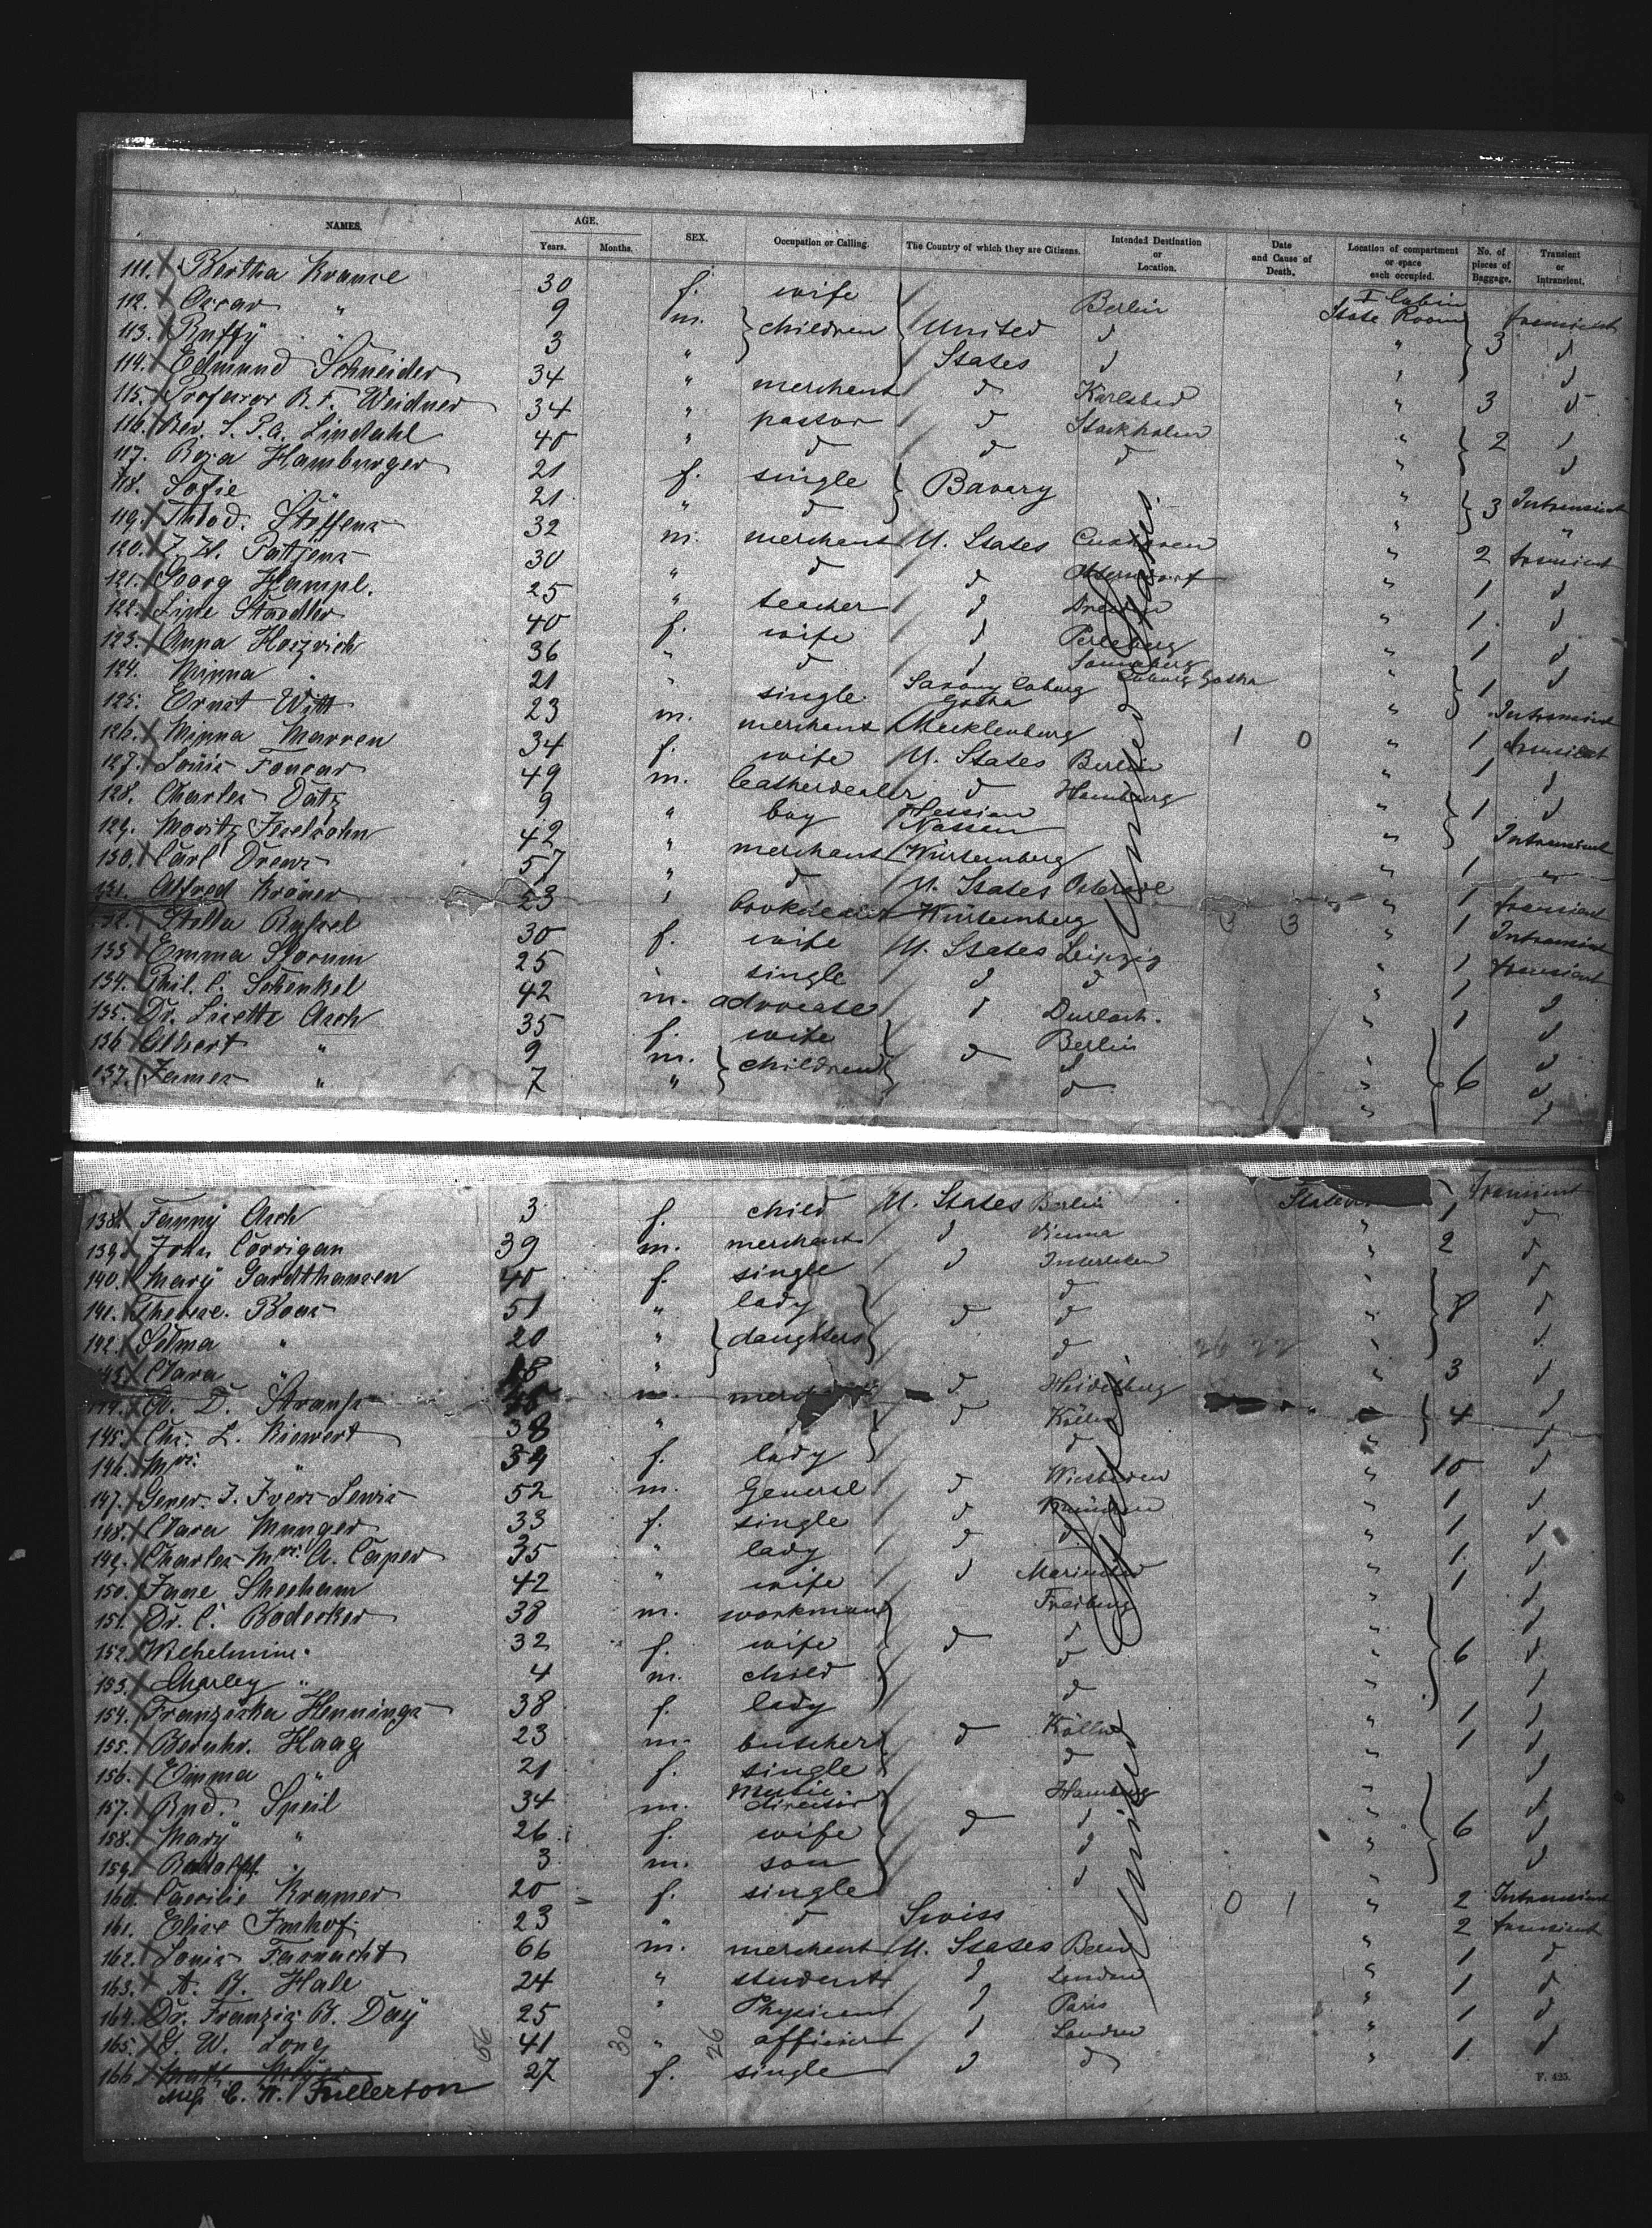 NAMES. AGE. Years. Months. SEX. Occupation or Calling. The Country of which they are Citizens. Intended Destination or Location. Date and Cause of Death. Location of compartment or space each occupied. No. of pieces of Baggage. Transient or Intransient.
111. X Bertha Krause 30 f. wife Berlin I Cabin State Room transient
112. X Oscar " 9 m. children United d " 3 d
113. X Ruffy " 3 " States d " d
114. X Edmund Schneider 34 " merchant d Karlsbad " 3 d
115. X Professor R. F. Weidner 34 " pastor d Stockholm " 2 d
116. X Rev. S. P. A. Lindahl 40 " d d d " d
117. Rosa Hamburger 21 f. single Bavary " 3 Intransient
118. Sofie " 21 " d " "
119. X Theod. Steffens 32 m. merchant U. States Cuxhaven " 2 transient
120. X 30 " d d " 1 d
121. X Georg Hampl. 25 " teacher d Dresden " 1 d
122. X Line Staedler 40 f. wife d Perleberg " 1 d
123. X Anna 36 " d d Sonneberg d
124. Minna " 21 " single Saxony Coburg Gotha Coburg Gotha " 1 Intransient
125. Ernst Witt 23 m. merchant Mecklenburg 1 0 " 1
126. X Minna Marren 34 f. wife U. States Berlin " 1 transient
127. X Louis 49 m. leatherdealer d Hamburg " d
128. Charles Datz 9 " boy Hessian Nassau " 1 Intransient
129. Moritz 42 " merchant Würtemberg " "
130. X Carl Drews 57 " d U. States Osterode " 1 transient
131. Alfred Kröner 23 " bookdealer Würtemberg 3 3 " 1 Intransient
132. X Stella 30 f. wife U. States Leipzig " 1 transient
133. X Emma Slocum 25 " single d d " 1 d
134. X Phil. C. Schenkel 42 m. advocate d Durlach. " 1 d
135. X Dr. Lisette Asch 35 f. wife d Berlin " 6 d
136. X Albert " 9 m. children d " d
137. X James " 7 " d " d
138. X Fanny Asch 3 f. child U. States Berlin 1 transient
139. X John Corrigan 39 m. merchant d Vienna " 2 d
140. X Mary Gardthausen 40 f. single d Interlaken " d
141. X Therese. Boas 51 " lady d d " 8 d
142. X Selma " 20 " daughters d " d
143. X Clara " 18 " d 26 22 "
144. X D. m. d Heidelberg " 3 d
145. X Chs. L. Kiewert 38 " d Kölln " 4 d
146. X Mrs. " 34 f. lady d " d
147. X Gener. J. Fvers Lewis 52 m. General d Wiesbaden " 10 d
148. X Clara Munger 33 f. single d München " 1 d
149. X Charles Mrs. A. Caper 35 " lady d d " 1 d
150. X Jane Sheeham 42 " wife d " 1 d
151. X Dr. C. Bödecker 38 m. workman Freiburg " 1 d
152. X Wilhelmine " 32 f. wife d d " 6 d
153. X Charley " 4 m. child d " d
154. Franziska Hennings 38 f. lady d " d
155. X Bernhr. Haag 23 m. butcher d Kölln " 1 d
156. X Emma " 21 f. single d " 1 d
157. X Rud. Speil 34 m. music director Hamburg " d
158. X Mary " 26 f. wife d d " 6 d
159. X Rudolph " 3 m. son d " d
160. X Caecilie Kramer 20 f. single d " d
161. Elise Imhof 23 " d Swiss 0 1 " 2 Intransient
162. X Louis 66 m. merchant U. States Bern " 2 transient
163. X A. B. Hale 24 " student d London " 1 d
164. X Dr. Franzis B. Day 25 " Physician d Paris " 1 d
165. X G. W. Long 41 " officier d London " 1 d
166. X 27 f. single d d " 1 d
Miss C. W. Fullerton
56 30 26
United States
United States
F. 425.